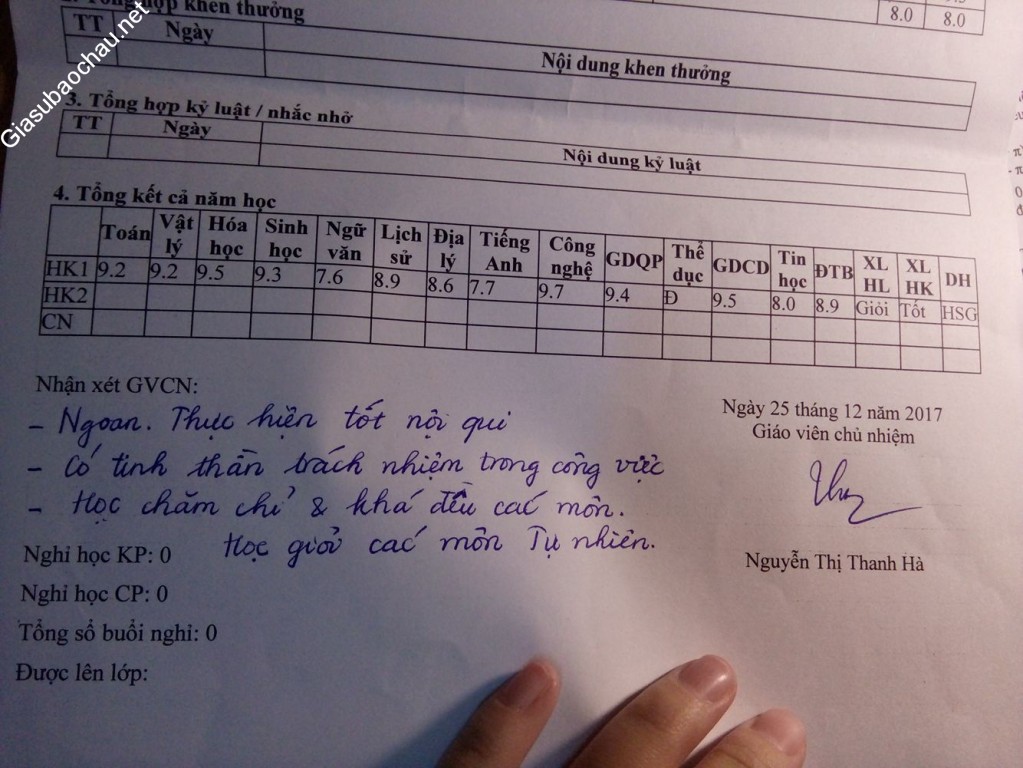 Giasubaochau.net
8.0 8.0
hợp khen thưởng
TT Ngày Nội dung khen thưởng
3. Tổng hợp kỷ luật / nhắc nhở
TT Ngày Nội dung kỷ luật
4. Tổng kết cả năm học
Toán Vật lý Hóa học Sinh học Ngữ văn Lịch sử Địa lý Tiếng Anh Công nghệ GDQP Thể dục GDCD Tin học ĐTB XL HL XL HK DH
HK1 9.2 9.2 9.5 9.3 7.6 8.9 8.6 7.7 9.7 9.4 Đ 9.5 8.0 8.9 Giỏi Tốt HSG
HK2
CN
Nhận xét GVCN:
- Ngoan. Thực hiện tốt nội qui
- Có tinh thần trách nhiệm trong công việc
- Học chăm chỉ & khá đều các môn.
Học giỏi các môn Tự nhiên.
Ngày 25 tháng 12 năm 2017
Giáo viên chủ nhiệm
Nguyễn Thị Thanh Hà
Nghỉ học KP: 0
Nghỉ học CP: 0
Tổng số buổi nghỉ: 0
Được lên lớp: